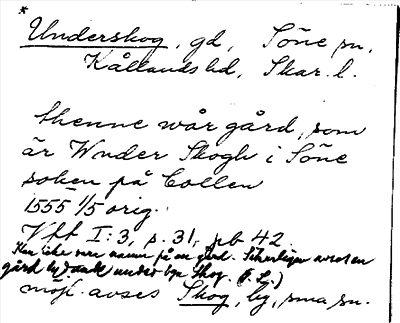 *
Underskog, gd, Söne sn,
Kållands hd, Skar. l.
thenne wår gård, som
är Wnder Skogh i Söne
soken på Collen
1555 1/5 orig.
Vft I:3, p. 31, nb 42.
Kan icke vara namn på en gård. Säkerligen avses en
gård lyd ande under byn Skog. (I. L.)
möjl. avses Skog, by, sma sn.